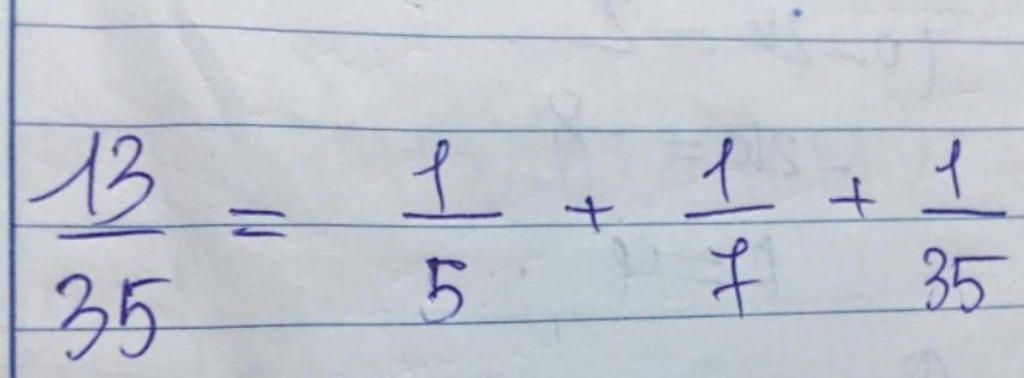 13/35 = 1/5 + 1/7 + 1/35